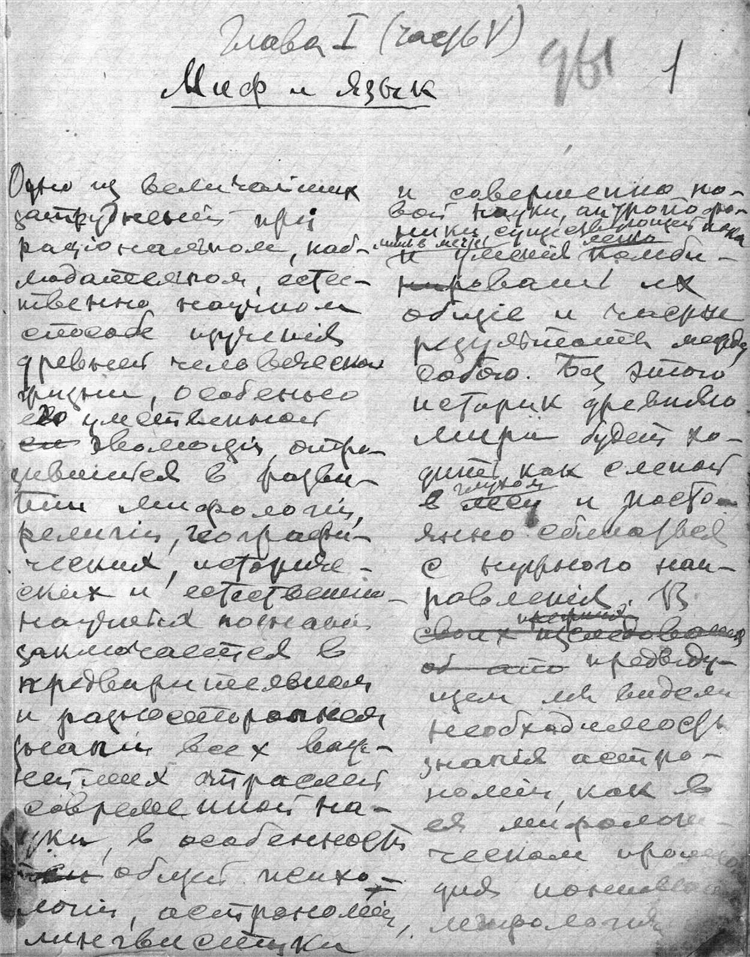 Глава I (часть V)
1
Миф и язык
Одно из величайших
затруднений при
раціональном, наб-
людательном, есте-
ственно научном
способе изучения
древней человеческой
жизни, особенно
его умственной
эволюціи, отра-
зившейся в разви-
тии мифологіи,
религіи, географи-
ческих, историче-
ских и естественно-
научных познаній
заключается в
предварительном
и разностороннем
знаніи всех важ-
нейших отраслей
современной на-
уки, в особенности
общей психо-
логіи, астрономіи,
лингвистики
и совершенно но-
вой науки, антропофо-
ники, существующей пока
лишь в мечте
и уменія комби-
нировать их
общіе и частные
результаты между
собою. Без этого
историк древняго
мира будет хо-
дить как слепой
в глухом лесу и посто-
янно сбиваться
с нужного нап-
равленія. В
предъиду-
щем мы видели
необходимость
знанія астро-
номіи, как в
ея
ческом
мифологии